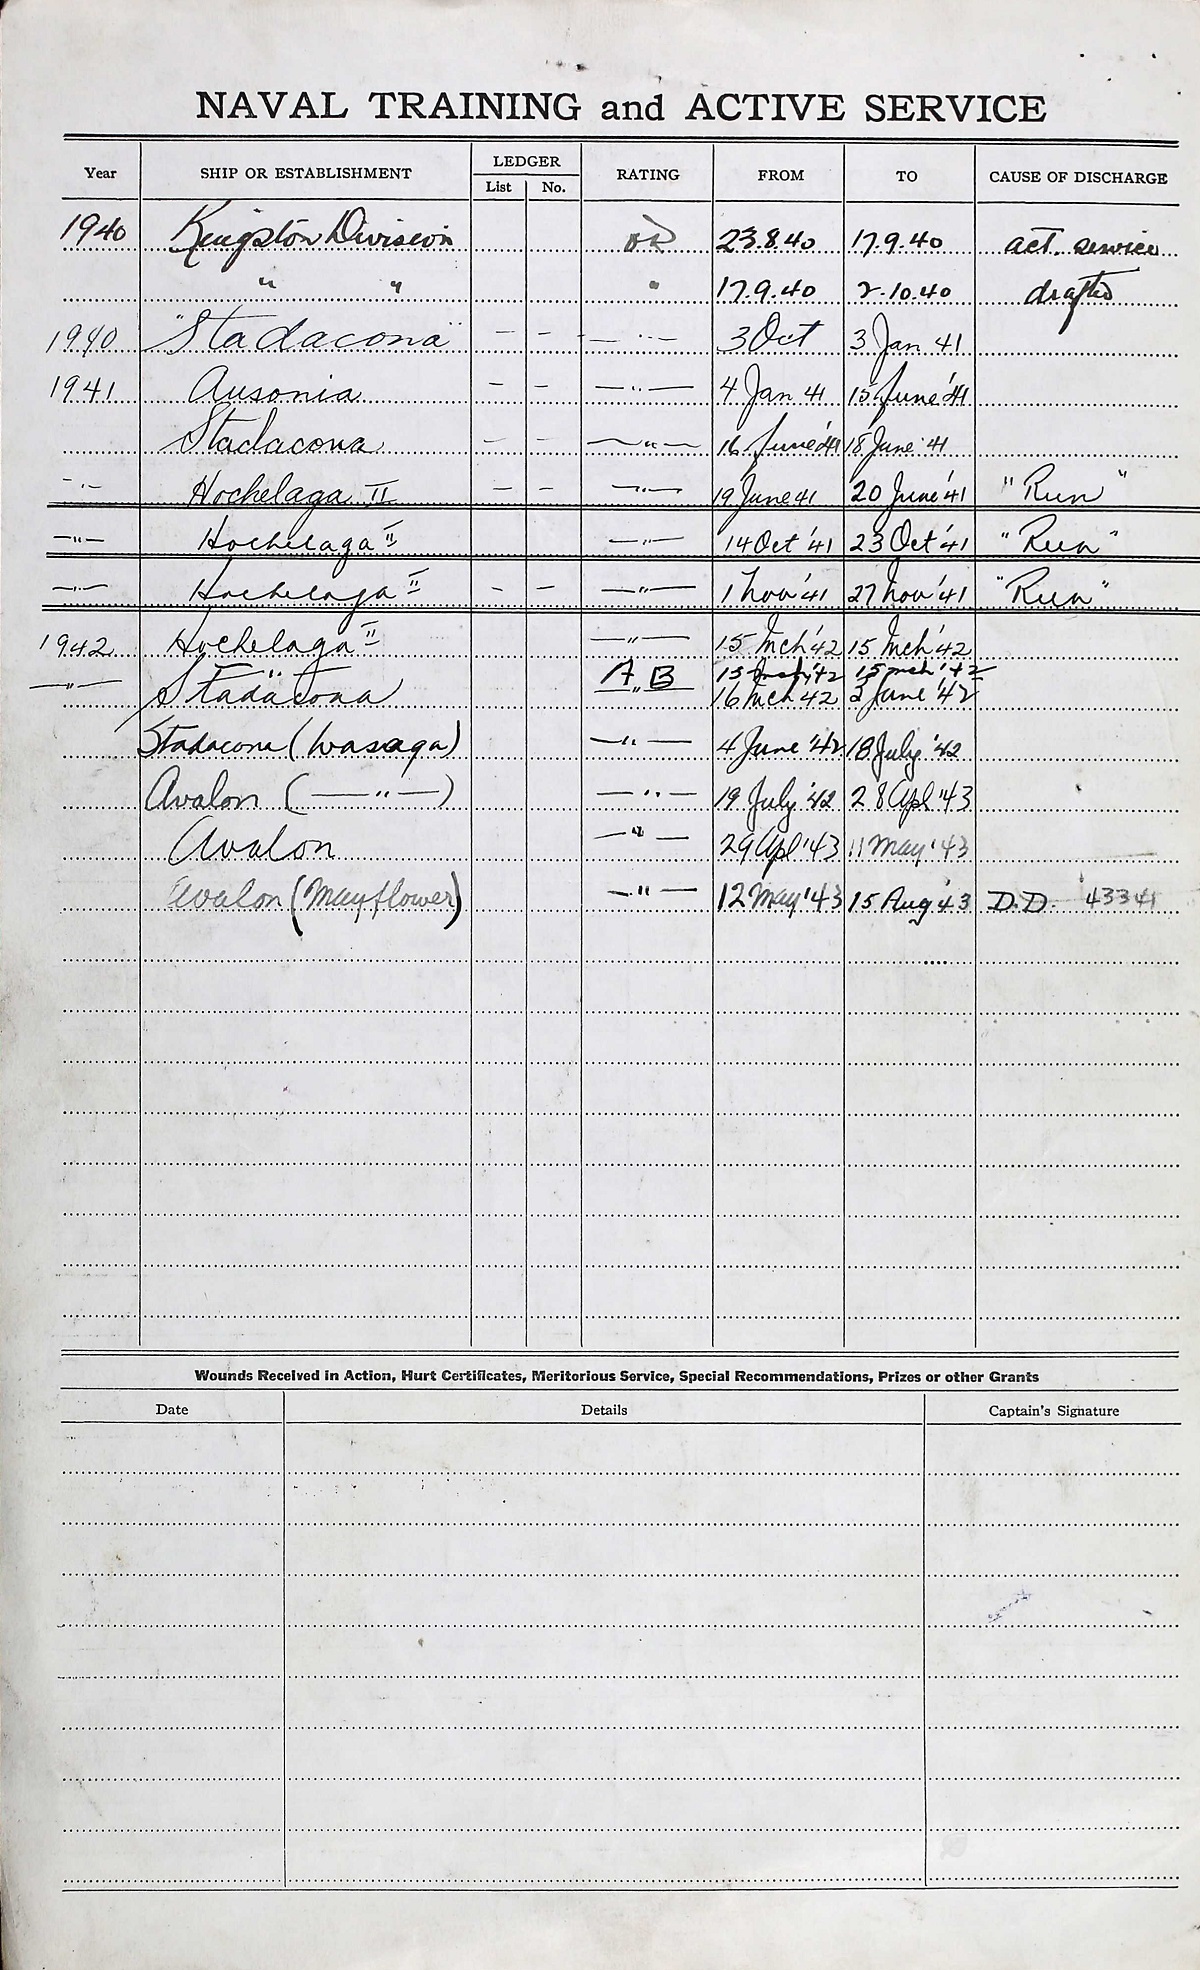 NAVAL TRAINING and ACTIVE SERVICE
Year SHIP OR ESTABLISHMENT LEDGER List No. RATING FROM TO CAUSE OF DISCHARGE
1940 Kingston Division 23.8.40 17.9.40 act. service
" " " 17.9.40 2.10.40 drafted
1940 "Stadacona" — — — " — 3 Oct 3 Jan 41
1941 Ausonia — — — " — 4 Jan 41 15 June '41
Stadacona — — — " — 16 June '41 18 June '41
— " — Hochelaga II — — — " — 19 June 41 20 June '41 "Run"
— " — Hochelaga II — " — 14 Oct '41 23 Oct '41 "Run"
— " — Hochelaga II — — — " — 1 Nov '41 27 Nov '41 "Run"
1942 Hochelaga II — " — 15 Mch '42 15 Mch '42
" A B 15 Mch '42 15 Mch '42
— " — Stadacona " 16 Mch 42 2 June '42
Stadacona (Wasaga) — " — 4 June '42 18 July '42
Avalon ( — " — ) — " — 19 July '42 28 Apl '43
Avalon — " — 29 Apl '43 11 May '43
Avalon (Mayflower) — " — 12 May '43 15 Aug '43 D.D. 43341
Wounds Received in Action, Hurt Certificates, Meritorious Service, Special Recommendations, Prizes or other Grants
Date Details Captain's Signature